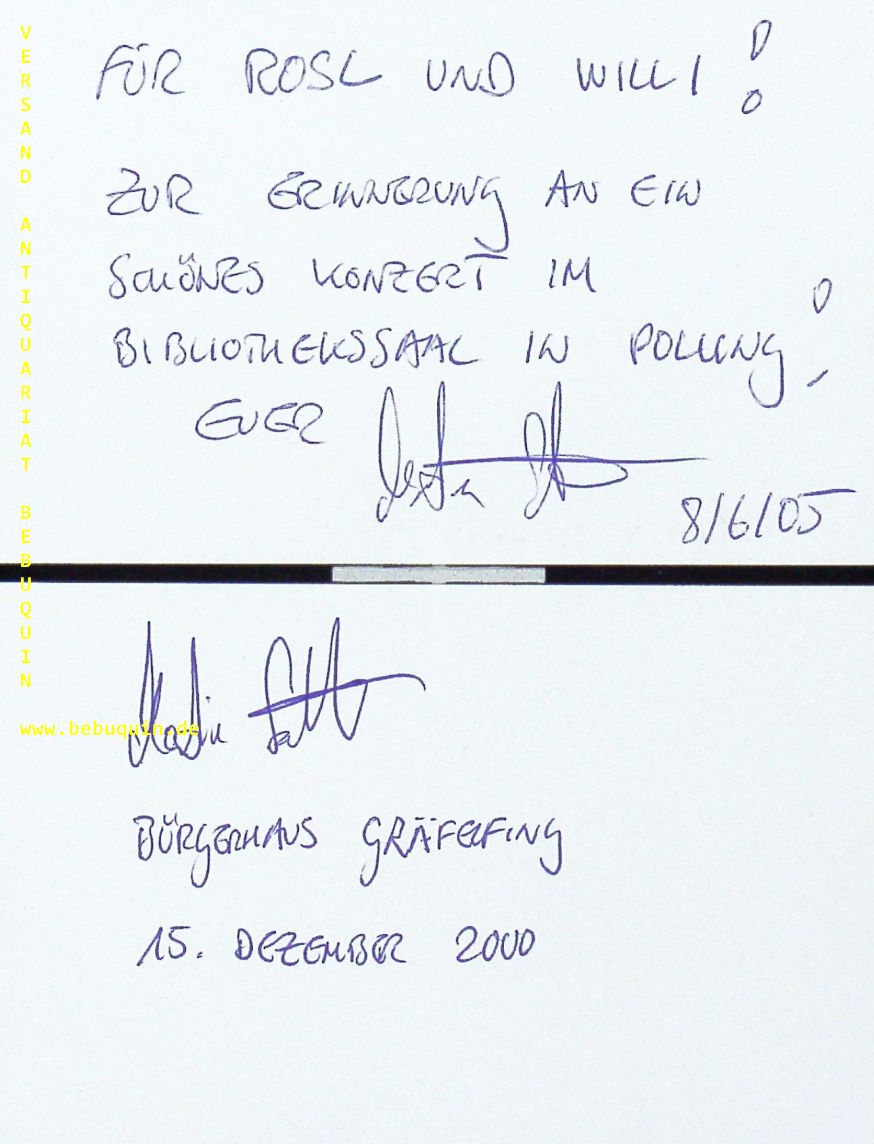 FÜR ROSL UND WILLI!
ZUR ERINNERUNG AN EIN
SCHÖNES KONZERT IM
BIBLIOTHEKSSAAL IN POLLING!
EUER
8/6/05
BÜRGERHAUS GRÄFELFING
15. DEZEMBER 2000
VERSAND ANTIQUARIAT BEBUQUIN
www.bebuquin.de